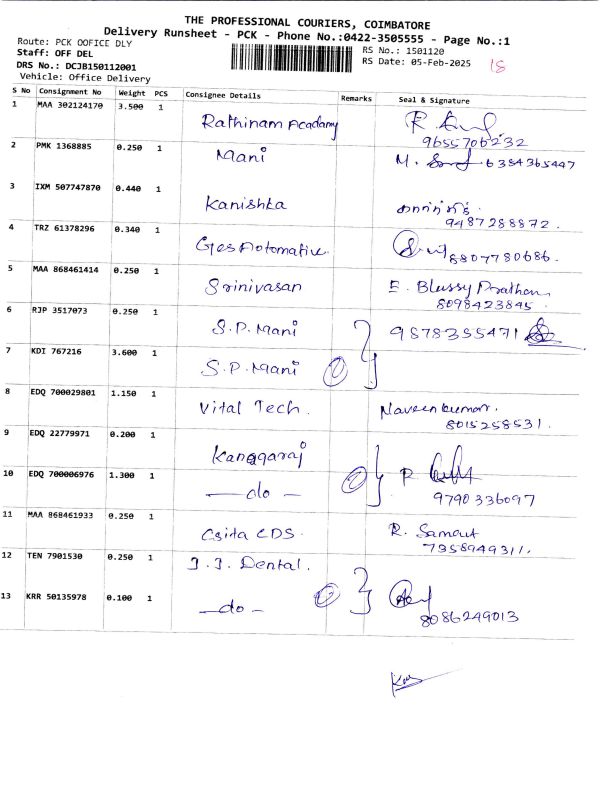 THE PROFESSIONAL COURIERS, COIMBATORE
Delivery Runsheet - PCK - Phone No.:0422-3505555 - Page No.:1
Route: PCK OOFICE DLY
RS No.: 1501120
Staff: OFF DEL
RS Date: 05-Feb-2025
18
DRS No.: DCJB150112001
Vehicle: Office Delivery
S No Consignment No Weight PCS Consignee Details Remarks Seal & Signature
1 MAA 302124170 3.500 1 Rathinam Academy
9655706232
2 PMK 1368885 0.250 1 Mani M. 6384365447
3 IXM 507747870 0.440 1 Kanishka
9487288872.
4 TRZ 61378296 0.340 1 Ges Automative.
8807780686.
5 MAA 868461414 0.250 1 Srinivasan E. Blessy Prathan
8098423845.
6 RJP 3517073 0.250 1 S.P. Mani 9878355471
7 KDI 767216 3.600 1 S.P. Mani
8 EDQ 700029801 1.150 1 Vital Tech. Naveenkumar.
8015258531.
9 EDQ 22779971 0.200 1 Kanagaraj
10 EDQ 700006976 1.300 1 —do— 9790336097
11 MAA 868461933 0.250 1 CDS. R.
7358949311.
12 TEN 7901530 0.250 1 J.J. Dental.
13 KRR 50135978 0.100 1 —do—
8086249013